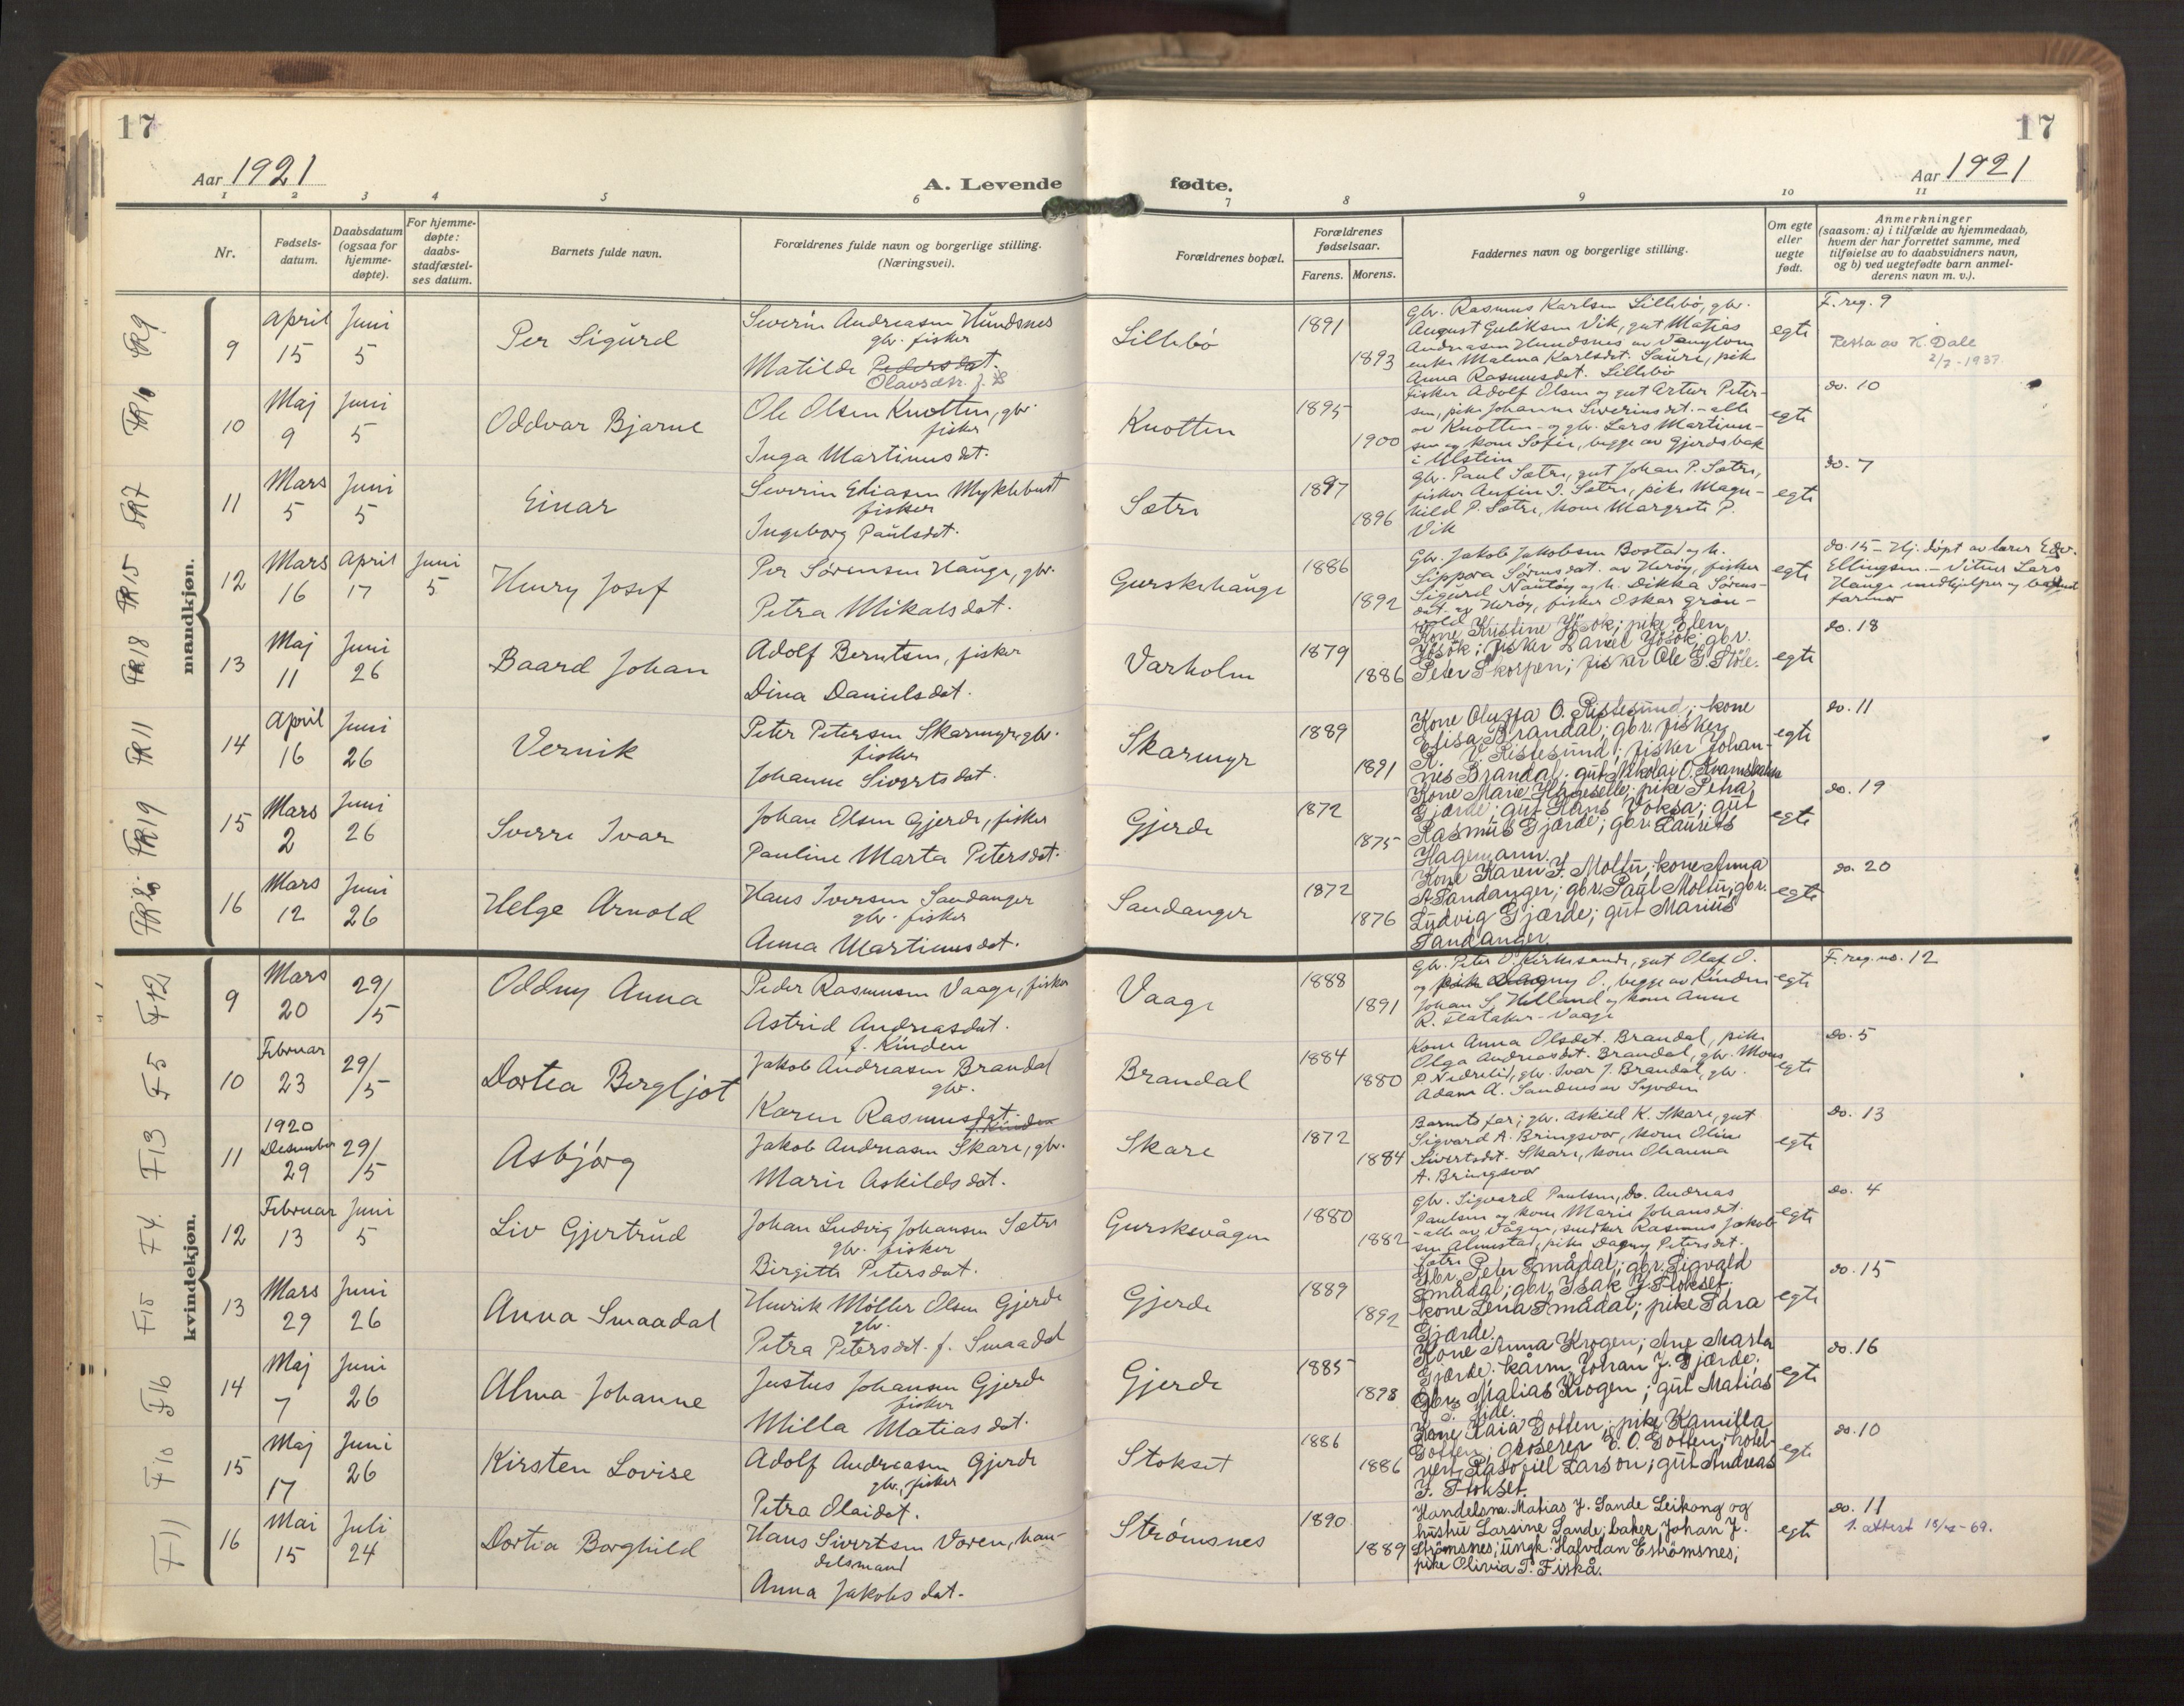 17
17
Aar 1921
A. Levende fødte.
Aar 1921
1 2 3 4 5 6 7 8 9 10 11
Nr.
Fødsels-
datum.
Daabsdatum
(ogsaa for
hjemme-
døpte).
For hjemme-
døpte:
daabs-
stadfæstel-
ses datum.
Barnets fulde navn.
Forældrenes fulde navn og borgerlige stilling.
(Næringsvei).
Forældrenes bopæl.
Forældrenes
fødselsaar.
Farens. Morens.
Faddernes navn og borgerlige stilling.
Om egte
eller
uegte
født.
Anmerkninger
(saasom: a) i tilfælde av hjemmedaab,
hvem der har forrettet samme, med
tilføielse av to daabsvidners navn,
og b) ved uegtefødte barn anmel-
derens navn m. v.).
mandkjøn.
9
April
15
Juni
5
Per Sigurd
Severin Andreasen Hundsnes
gbr. fisker
Matilde Pedersdat.
Olavsdtr.
Lillebø
1891
1893
Gbr. Rasmus Karlsen Lillebø, gbr.
August Guliksen Vik, gut Matias
Andreasen Hundsnes av Vanylven
enke Malena Karlsdat. Saure, pike
Anna Rasmusdat. Lillebø
egte
F. reg. 9
Resta av K. Dale
1937
10
Maj
9
Juni
5
Oddvar Bjarne
Ole Olsen Knotten, gbr.
fisker
Inga Martinusdat.
Knotten
1895
1900
fisker Adolf Olsen og gut Artur Peter-
sen, pike Johanne Severinsdat. - alle
av Knotten - og gbr. Lars Martinus-
sen og kone Sofie, begge av Gjerdsbak
i Ulstein
egte
do. 10
11
Mars
5
Juni
5
Einar
Severin Eliasen Myklebust
fisker
Ingeborg Paulsdat.
Sætre
1897
1896
Gbr. Paul Sætre, gut Johan P. Sætre,
fisker Anfin I. Sætre, pike Magn-
hild P. Sætre, kone Margrete P.
Vik
egte
do. 7
12
Mars
16
April
17
Juni
5
Henry Josef
Per Sørensen Hauge, gbr.
Petra Mikalsdat.
Gurskehauge
1886
1892
Gbr. Jakob Jakobsen Bostad og h.
Sippora Sørensdat. av Herøy, fisker
Sigurd Nautøy og h. Dikka Sørens-
dat. av Herøy, fisker Oskar Grøn-
vold
egte
do. 15 - Hj. døpt av lærer Edv.
Ellingsen. - Vitner Lars
Hauge medhjelper og barnets
farmor
13
Maj
11
Juni
26
Baard Johan
Adolf Berntsen, fisker
Dina Danielsdat.
Varholm
1879
1886
Kone Kristine Yøsok; pike Elen
Yøsok; fisker Daniel Yøsok; gbr.
Peter Skorpen; fisker Ole
egte
do. 18
14
April
16
Juni
26
Vernik
Peter Petersen Skarmyr, gbr.
fisker
Johanne Sivertsdat.
Skarmyr
1889
1891
Kone Oluffa O. Ristesund; kone
Elisa Brandal; gbr. fisker
R. Ristesund; fisker Johan-
nes Brandal; gut Nikolai O.
egte
do. 11
15
Mars
2
Juni
26
Sverre Ivar
Johan Olsen Gjerde, fisker
Pauline Marta Petersdat.
Gjerde
1872
1875
Kone Marie Hageselle; pike Petra
Gjærde; gut Hans Voksa; gut
Rasmus Gjærde; gbr. Laurits
Hagemann.
egte
do. 19
16
Mars
12
Juni
26
Helge Arnold
Hans Iversen Sandanger
gbr. fisker
Anna Martinusdat.
Sandanger
1872
1876
Kone Karen J. Moltu; kone Anna
A. Sandanger; gbr. Paul Moltu; gbr.
Ludvig Gjærde; gut Marius
Sandanger.
egte
do. 20
kvindekjøn.
F12
9
Mars
20
29/5
Oddny Anna
Peder Rasmusen Vaage, fisker
Astrid Andreasdat.
f. Kinden
Vaage
1888
1891
Gbr. Peter O. Kirkesande, gut Olaf O.
og pike Dagny O., begge av Kinden
Johan S. Helland og kone Anne
R. Flataker - Vaage
egte
F. reg. no. 12
F5
10
Februar
23
29/5
Dortea Bergljot
Jakob Andreasen Brandal
gbr.
Karen Rasmusdat.
f. Kinden
Brandal
1884
1880
Kone Anna Olsdat. Brandal, pike
Olga Andreasdat. Brandal, gbr. Mons
P. Nedrelid, gbr. Ivar J. Brandal, gbr.
Adam A. Sandnes av Syvden
egte
do. 5
F13
11
1920
Desember
29
29/5
Asbjørg
Jakob Andreasen Skare, gbr.
Marie Askildsdat.
Skare
1872
1884
Barnets far; gbr. Askild K. Skare, gut
Sigvard A. Bringsvor, kone Oline
Sivertsdat. Skare, kone Olianna
A. Bringsvor
egte
do. 13
F4.
12
Februar
13
Juni
5
Liv Gjertrud
Johan Ludvig Johansen Sætre
gbr. fisker
Birgitte Petersdat.
Gurskevågen
1880
1882
Gbr. Sigvard Paulsen, do. Andreas
Paulsen og kone Marie Johansdat.
- alle av Vågen, snedker Rasmus Jakob-
sen Almestad, pike Dagny Petersdat.
Sætre
egte
do. 4
F15
13
Mars
29
Juni
26
Anna Smaadal
Henrik Møller Olsen Gjerde
gbr.
Petra Petersdat. f. Smaadal
Gjerde
1889
1892
Gbr. Peter Smådal; gbr. Sigvald
Smådal; gbr. Isak J. Stokset;
kone Lena Smådal; pike Sara
Gjærde.
egte
do. 15
F16
14
Maj
7
Juni
26
Alma Johanne
Justus Johansen Gjerde
fisker
Milla Matiasdat.
Gjerde
1885
1898
Kone Anna Krogen; Ane Marta
Gjærde; kårm. Johan J. Gjærde;
Gbr. Matias Krogen; gut Matias
egte
do. 16
F10
15
Maj
17
Juni
26
Kirsten Lovise
Adolf Andreasen Gjerde
gbr., fisker
Petra Olaidat.
Stokset
1886
1886
Kone Kaia Gotten; pike Kamilla
Gotten; grosserer E. O. Gotten; hotel-
vert Larson; gut Andreas
J. Stokset.
egte
do. 10
F11
16
Mai
15
Juli
24
Dortea Borghild
Hans Sivertsen Voren, han-
delsmand
Anna Jakobsdat.
Strømsnes
1890
1889
Handelsm. Matias J. Sande Leikong og
hustru Larsine Sande; baker Johan J.
Strømsnes; ungk. Halvdan E. Strømsnes;
pike Olivia P. Fiskå.
egte
do. 11
1. attest 18/12-69.